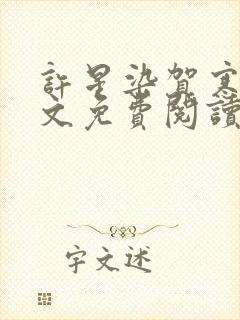 許星染賀寒
文免費閱讀
字文述